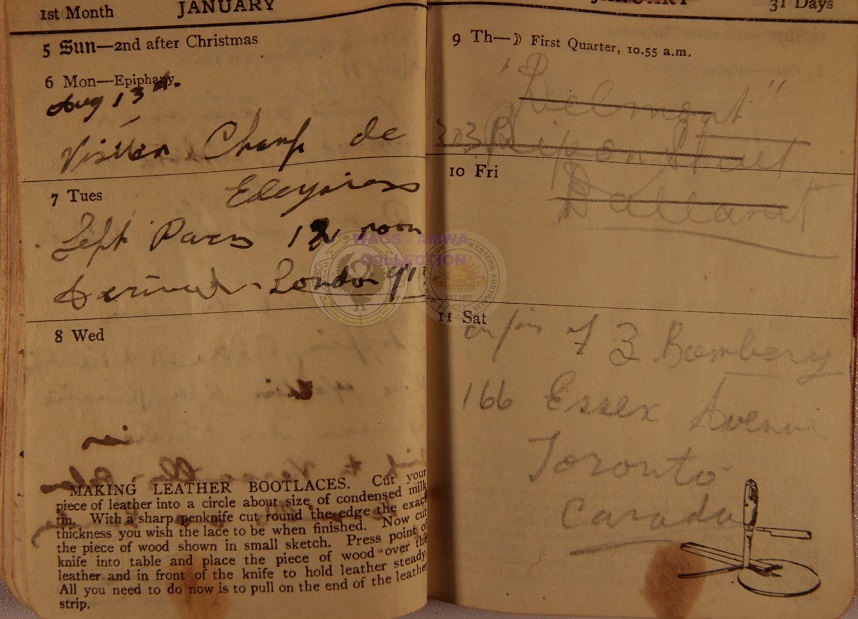 1st Month JANUARY
5 Sun—2nd after Christmas
6 Mon—Epiphany.
Aug 13th.
Visited Champ de
Eleysiess
7 Tues
Left Paris 12 noon
Arrived London
8 Wed
MAKING LEATHER BOOTLACES. Cut your
piece of leather into a circle about size of condensed milk
tin. With a sharp penknife cut round the edge the exact
thickness you wish the lace to be when finished. Now cut
the piece of wood shown in small sketch. Press point of
knife into table and place the piece of wood over the
leather and in front of the knife to hold leather steady.
All you need to do now is to pull on the end of the leather
strip.
JANUARY 31 Days
9 Th—☽ First Quarter, 10.55 a.m.
"Belmont"
303 Ripon Street
10 Fri
Ballarat
11 Sat
of
166 Essex Avenue
Toronto
Canada
WAGS - ANWA
COLLECTION